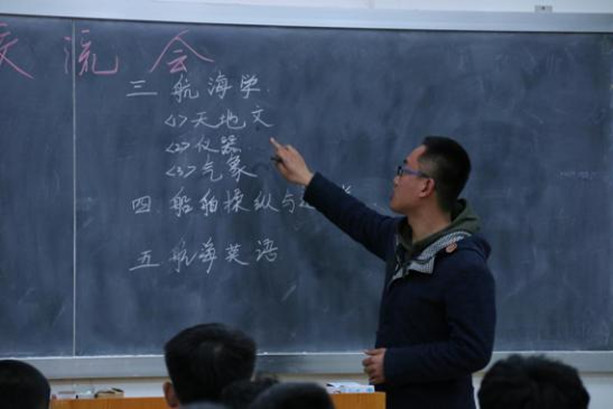 交流会
三 航海学.
<1>天地文
<2>仪器
<3>气象
四.船舶操纵与
五 航海英语